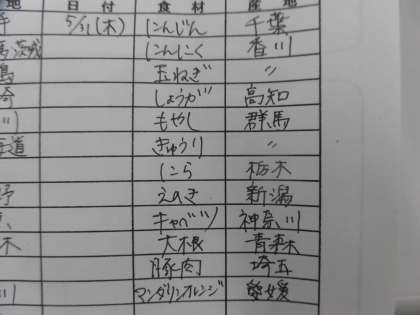 地 日付 食材 産地
手 5/31(木) にんじん 千葉
茨城 にんにく 香川
島 玉ねぎ 〃
崎 しょうが 高知
川 もやし 群馬
海道 きゅうり 〃
にら 栃木
野 えのき 新潟
キャベツ 神奈川
木 大根 青森
豚肉 埼玉
川 マンダリンオレンジ 愛媛